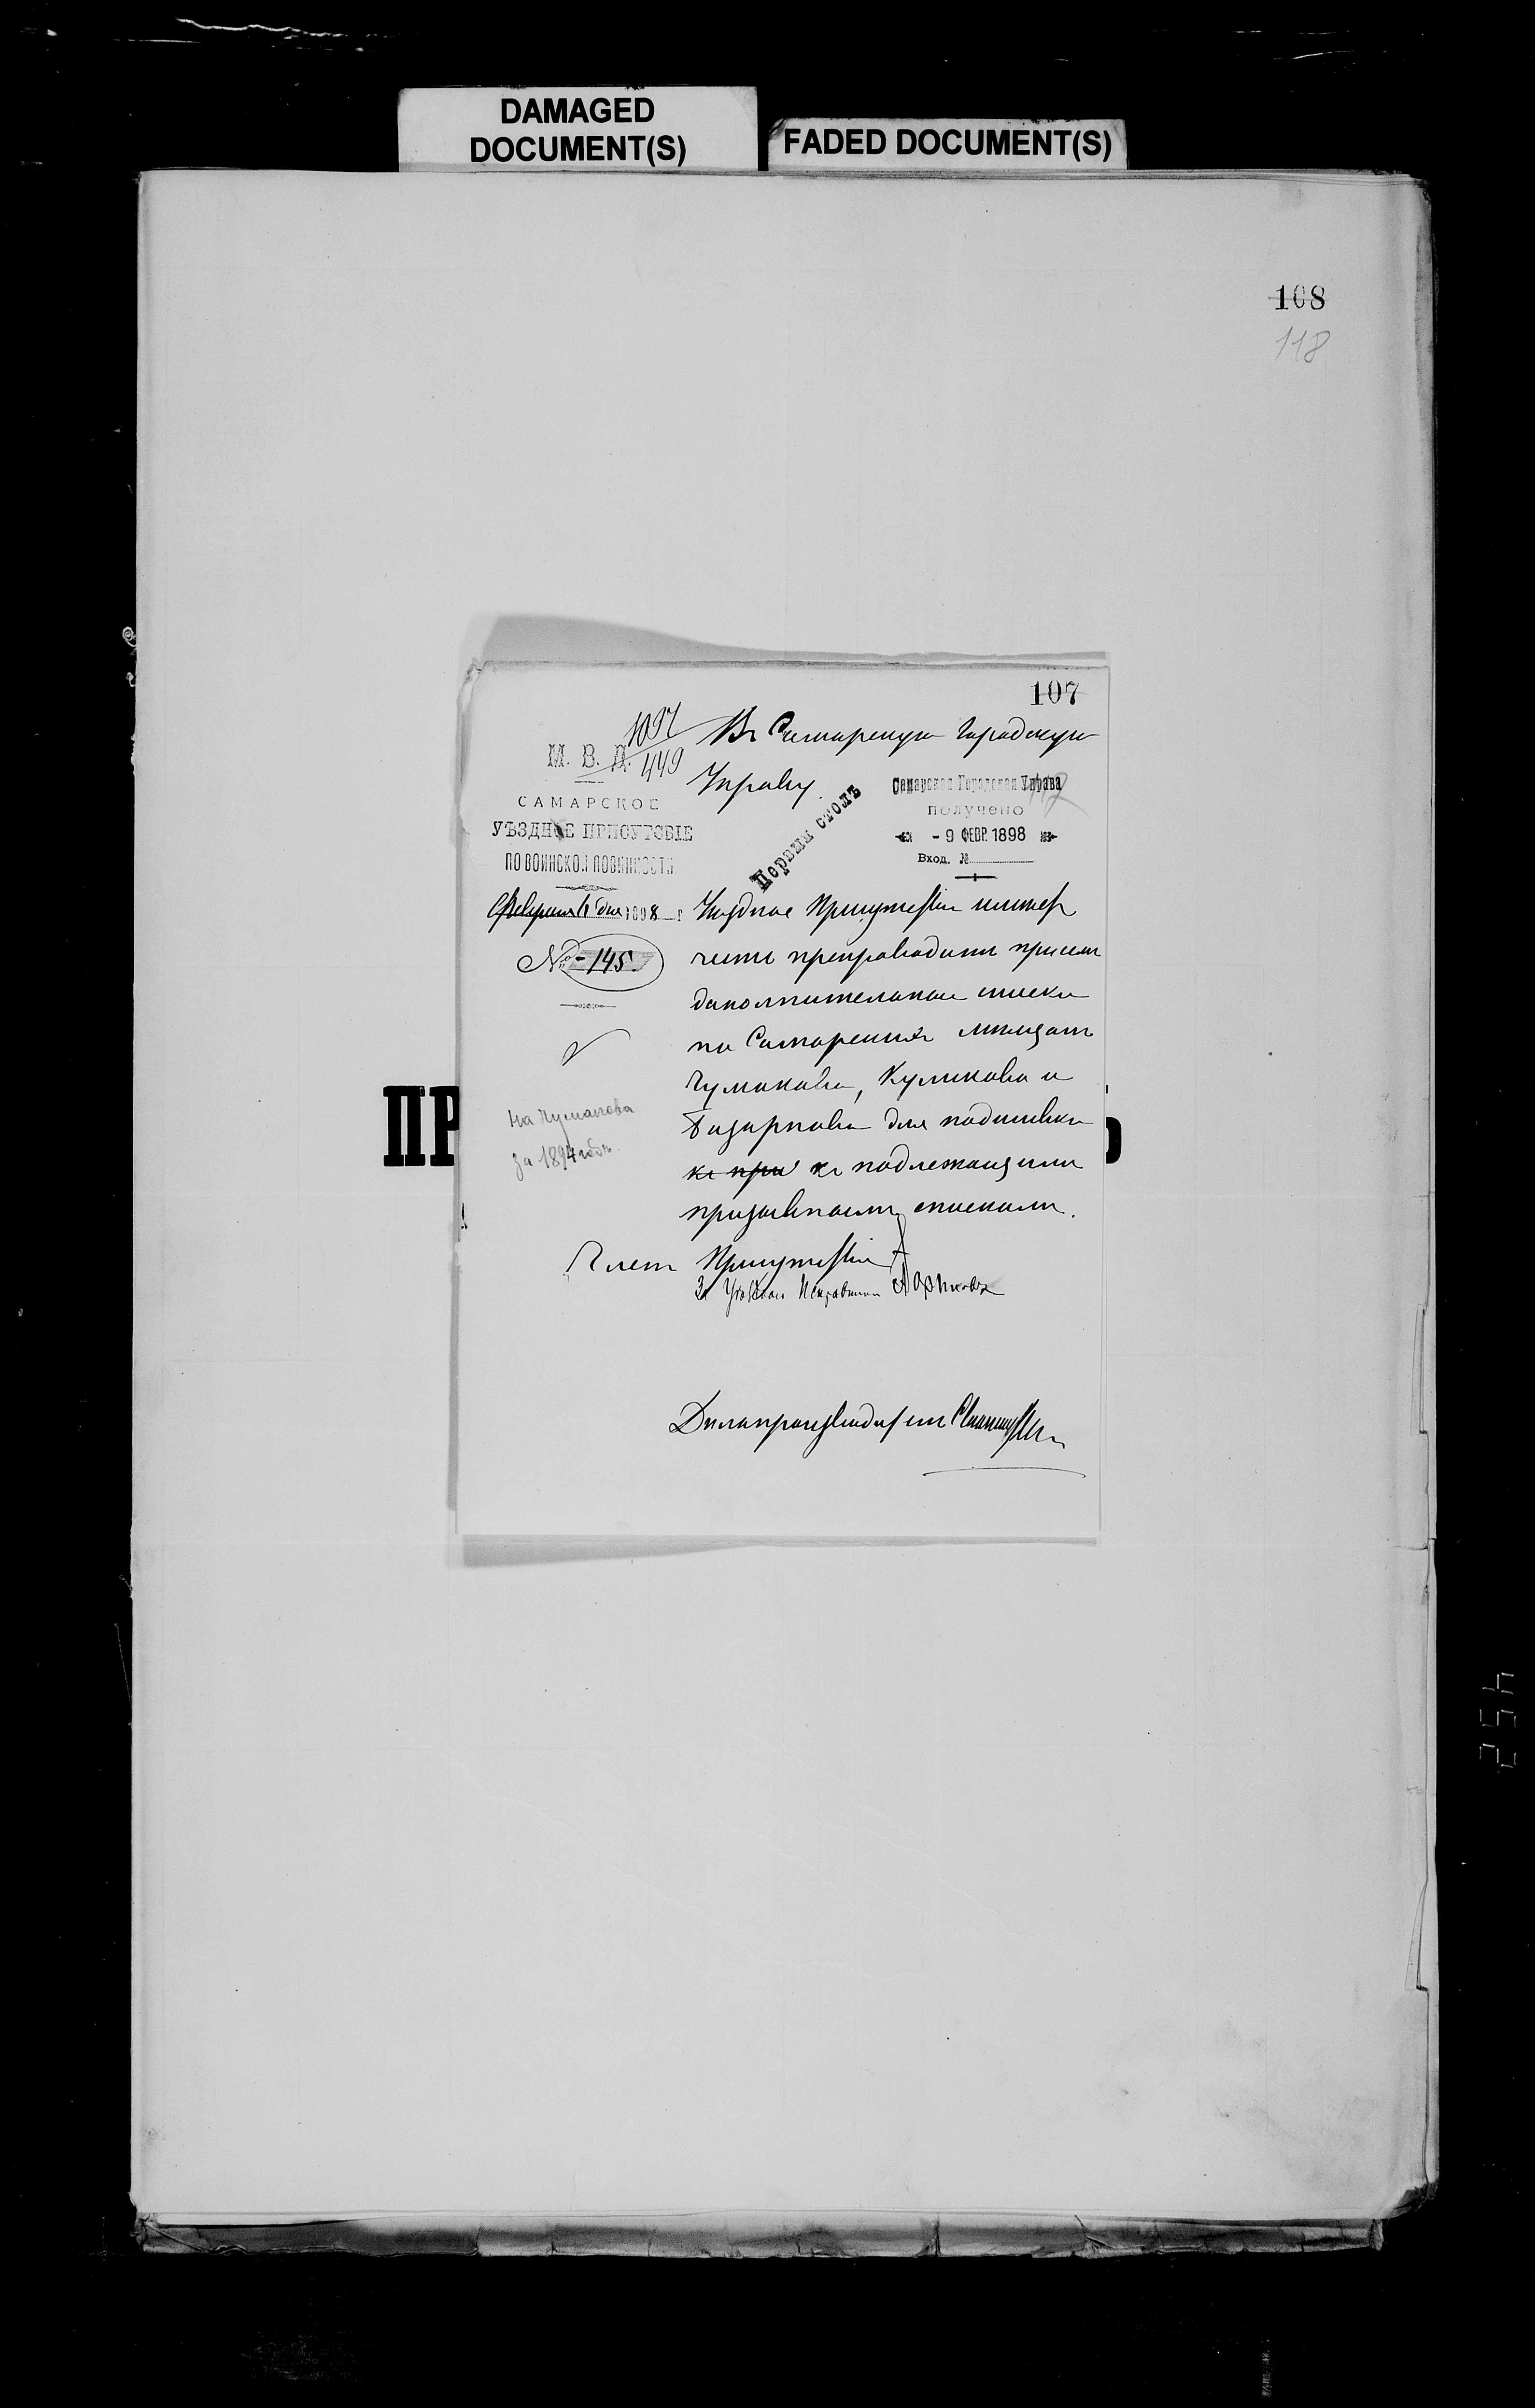 DAMAGED
DOCUMENT(S)
FADED DOCUMENT(S)
108
118
107
1097
449
М. В. Д.
САМАРСКОЕ
УѢЗДНОЕ ПРИСУТСВІЕ
ПО ВОИНСКОЙ ПОВИННОСТИ
Февраля 6 дня 1898 г
№ 145
На Чумакова
за 1894 годъ
Въ Самарскую Городскую
Управу.
Первый столъ
Самарская Городская Управа
получено
- 9 ФЕВР. 1898
Вход. №
Уѣздное Присутствіе имѣетъ
честь препроводить при семъ
дополнительные списки
на Самарскихъ мѣщанъ
Чумакова, Куликова и
Базарнова для подшивки
къ при къ подлежащимъ
призывнымъ спискамъ.
Членъ Присутствія
За Уѣзднаго Исправника
Дѣлопроизводитель
ПР
452